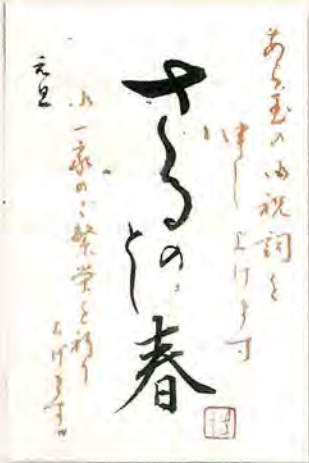 あら玉の御祝詞を
申し上げます
さるのとし春
御一家のご繁栄を祈り
上げます。
元旦